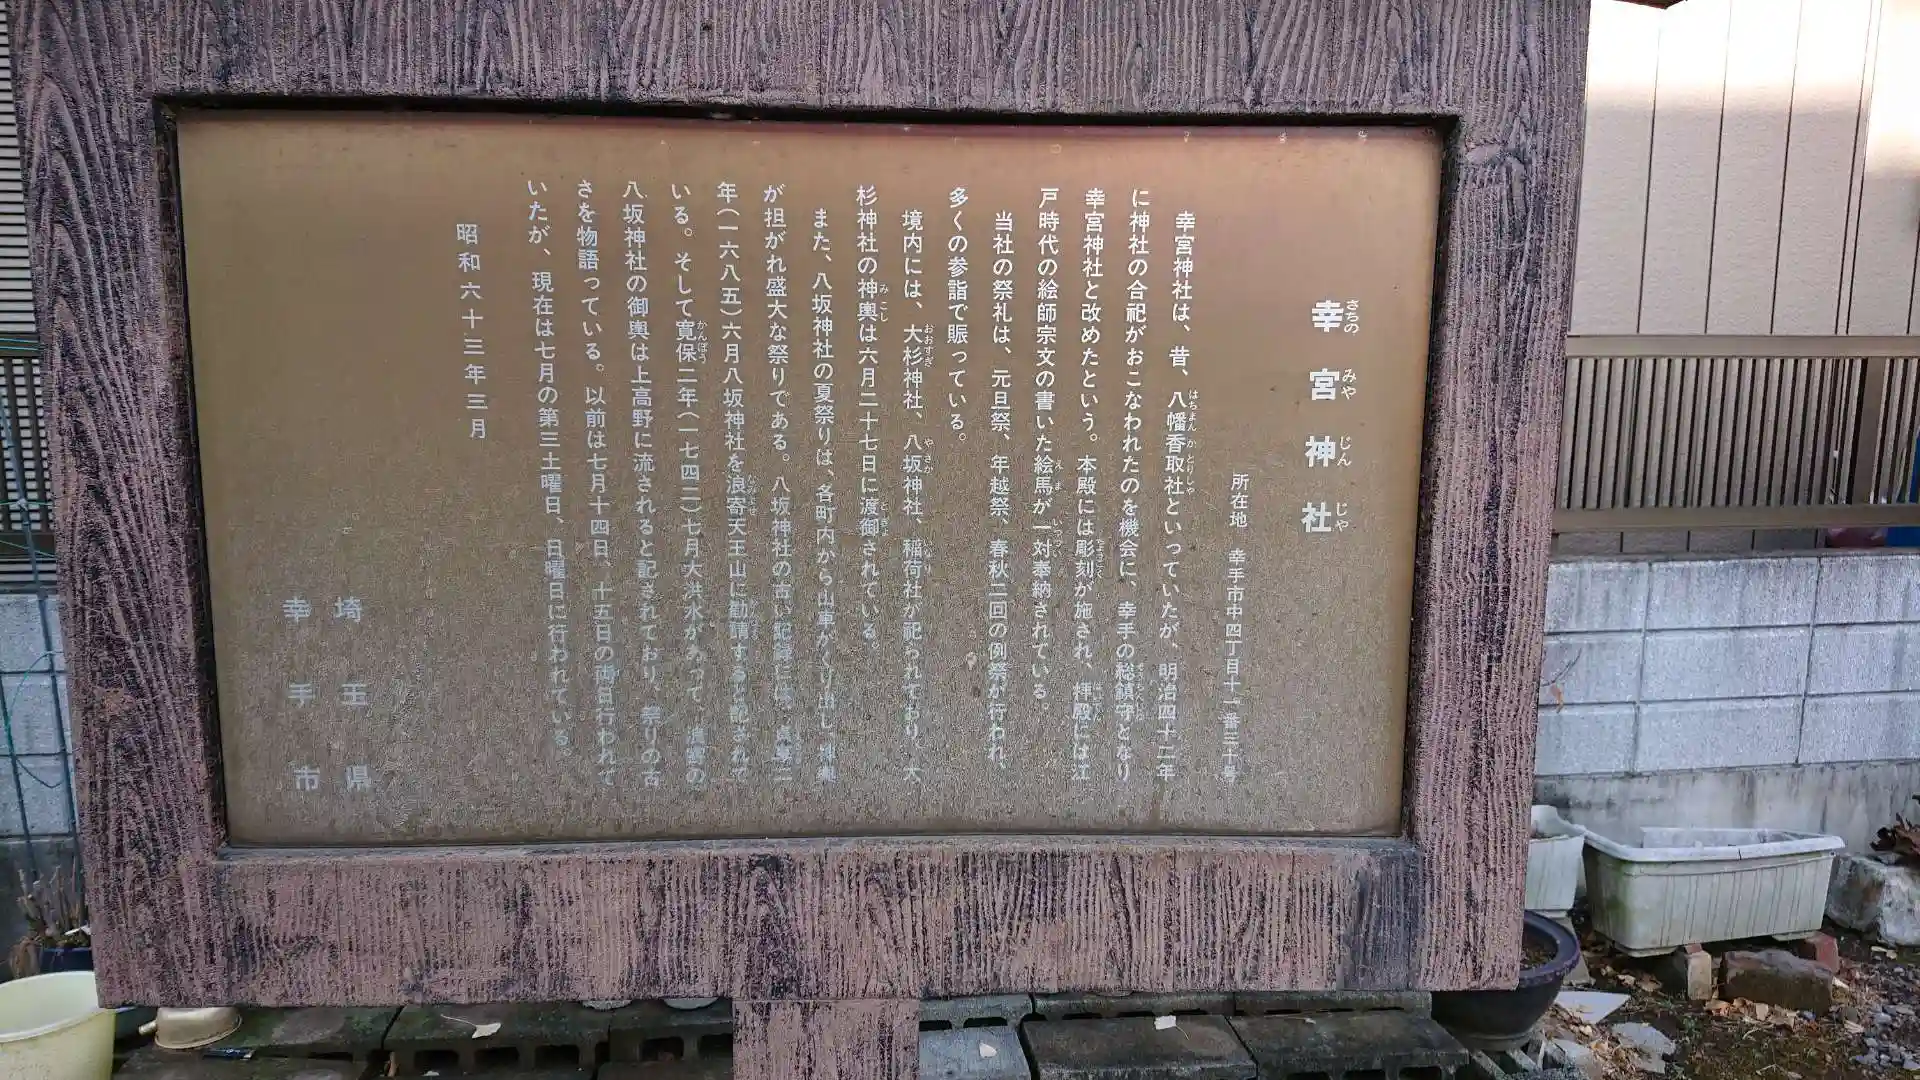 幸宮神社
所在地　幸手市中四丁目十一番三十号
幸宮神社は、昔、八幡香取社といっていたが、明治四十二年
に神社の合祀がおこなわれたのを機会に、幸手の総鎮守となり
幸宮神社と改めたという。本殿には彫刻が施され、拝殿には江
戸時代の絵師宗文の書いた絵馬が一対奉納されている。
当社の祭礼は、元旦祭、年越祭、春秋二回の例祭が行われ、
多くの参詣で賑っている。
境内には、大杉神社、八坂神社、稲荷社が祀られており、大
杉神社の神輿は六月二十七日に渡御されている。
また、八坂神社の夏祭りは、各町内から山車がくり出し、神輿
が担がれ盛大な祭りである。八坂神社の古い記録には、貞享二
年(一六八五)六月八坂神社を浪寄天王山に勧請すると記されて
いる。そして寛保二年(一七四二)七月大洪水があって、浪寄の
八坂神社の御輿は上高野に流されると記されており、祭りの古
さを物語っている。以前は七月十四日、十五日の両日行われて
いたが、現在は七月の第三土曜日、日曜日に行われている。
昭和六十三年三月
埼玉県
幸手市